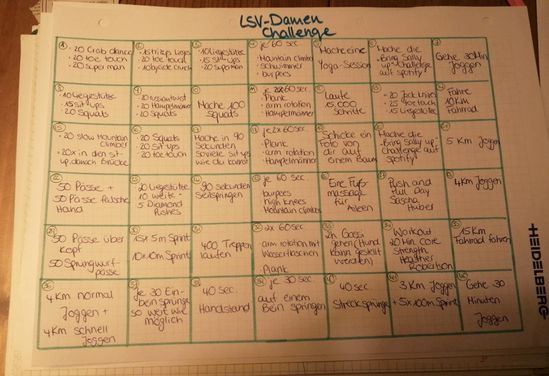 LSV-Damen
Challenge
20 Crab dance
20 toe touch
20 superman
20 toe touch
10 Liegestütze
15 sit ups
20 superman
je 60 sec
Mountain climber
burpees
Mache eine
Yoga-Session
Mache die
"Bring Sally
up" Challenge
auf spotify
Gehe 30 Min
Joggen
10 Liegestütze
15 sit ups
20 Squats
20 Hampelmänner
20 Squats
Mache 100
Squats
je 2x60 sec
Plank
arm rotation
Hampelmänner
Laufe
15.000
Schritte
25 toe touch
15 Liegestütze
Fahre
10 Km
Fahrrad
20 slow Mountain
Climber
20x in den sit
up, danach Brücke
20 Squats
20 sit ups
20 toe touch
Mache in 90
sekunden
soviele sit ups
wie du kannst
je 2x60 sec
Plank
arm rotation
Hampelmänner
Schicke ein
Foto von
dir auf
einem Baum
Mache die
"Bring Sally
up" Challenge auf
spotify
5 Km Joggen
50 Pässe +
50 Pässe falsche
Hand
20 Liegestütze
10 weite +
5 Diamond
Pushes
90 sekunden
Seilspringen
je 60 sec
burpees
high knees
Mountain climbers
Eine Fuß-
massage
für
Push and
Pull Day
Sascha
Huber
4 Km Joggen
50 Pässe über
Kopf
50 Sprungwurf-
pässe
15x 5m Sprint
10x 10m Sprint
400 Treppen
laufen
2x 60 sec
arm rotation mit
Wasserflaschen
Plank
2h Gassi
gehen (Hund
kann gestellt
werden)
Workout
20 Min. core
Strength
Heather
Robertson
15 Km
Fahrrad fahren
4 Km normal
Joggen +
4 Km schnell
Joggen
je 30 Ein-
bein sprünge
so weit wie
möglich
40 sec.
Handstand
je 30 sec
auf einem
Bein springen
40 sec
Strecksprünge
3 Km Joggen
+ 5x 100m Sprint
Gehe 30
Minuten
Joggen
HEIDELBERG